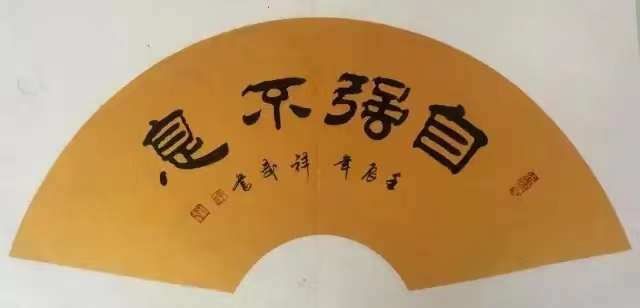 自强不息
壬辰年祥武书